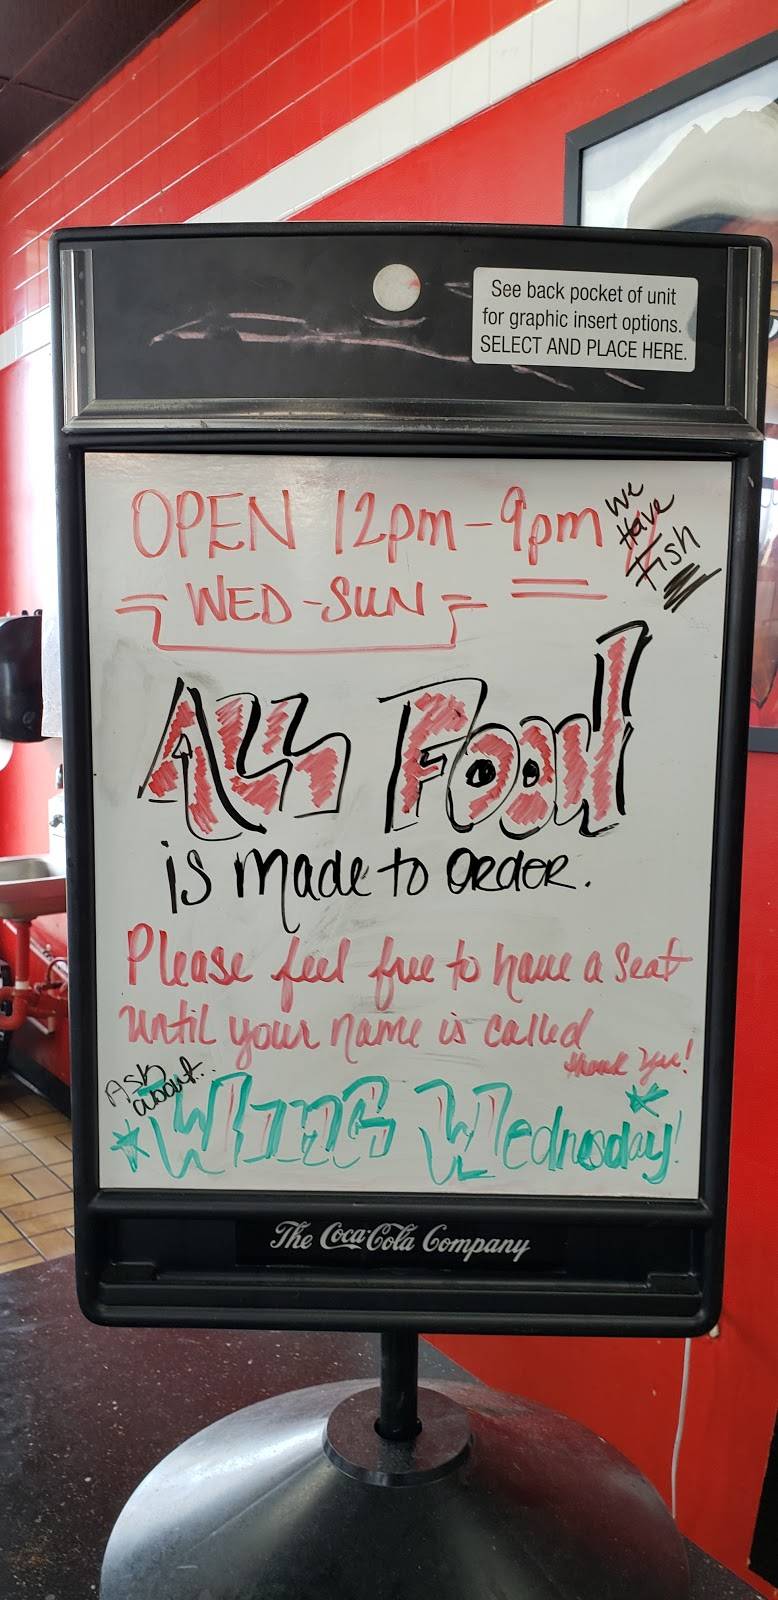 See back pocket of unit
for graphic insert options.
SELECT AND PLACE HERE.
OPEN 12pm-9pm
We
Have
Fish
WED-SUN
All Food
is made to order.
Please feel free to have a seat
until your name is called
thank you!
Ask
about...
Wing Wednesday!
The Coca-Cola Company